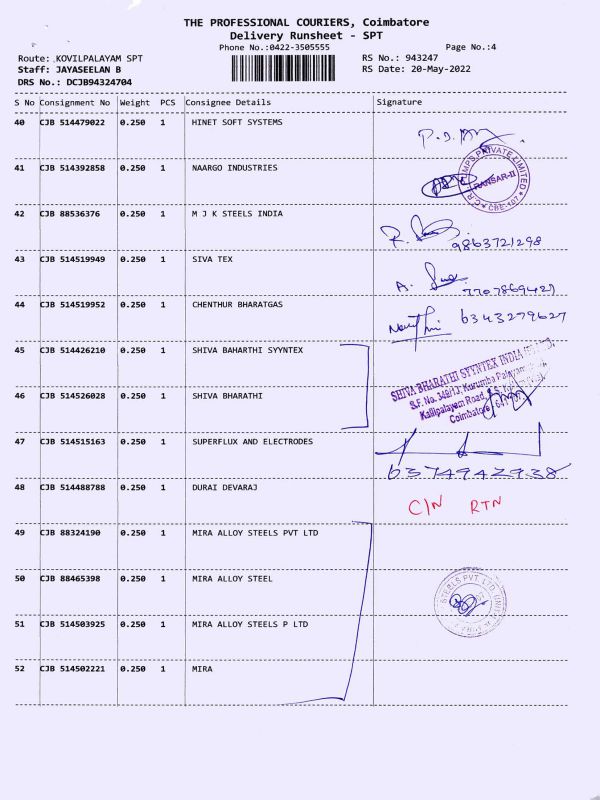 THE PROFESSIONAL COURIERS, Coimbatore
Delivery Runsheet - SPT
Phone No.:0422-3505555
Page No.:4
Route: KOVILPALAYAM SPT
RS No.: 943247
Staff: JAYASEELAN B
RS Date: 20-May-2022
DRS No.: DCJB94324704
S No Consignment No Weight PCS Consignee Details Signature
40 CJB 514479022 0.250 1 HINET SOFT SYSTEMS
41 CJB 514392858 0.250 1 NAARGO INDUSTRIES
PRIVATE LIMITED
RANSAR-II
42 CJB 88536376 0.250 1 M J K STEELS INDIA
9863721298
43 CJB 514519949 0.250 1 SIVA TEX
7707869427
44 CJB 514519952 0.250 1 CHENTHUR BHARATGAS
6343279627
45 CJB 514426210 0.250 1 SHIVA BAHARTHI SYYNTEX
SHIVA BHARATHI SYYNTEX INDIA
S.F. No. 349/1J, Kurumba Palayam
Kallipalayam Road,
Coimbatore
46 CJB 514526028 0.250 1 SHIVA BHARATHI
47 CJB 514515163 0.250 1 SUPERFLUX AND ELECTRODES
6374942938
48 CJB 514488788 0.250 1 DURAI DEVARAJ
C/N RTN
49 CJB 88324190 0.250 1 MIRA ALLOY STEELS PVT LTD
50 CJB 88465398 0.250 1 MIRA ALLOY STEEL
STEELS PVT. LTD.
51 CJB 514503925 0.250 1 MIRA ALLOY STEELS P LTD
52 CJB 514502221 0.250 1 MIRA